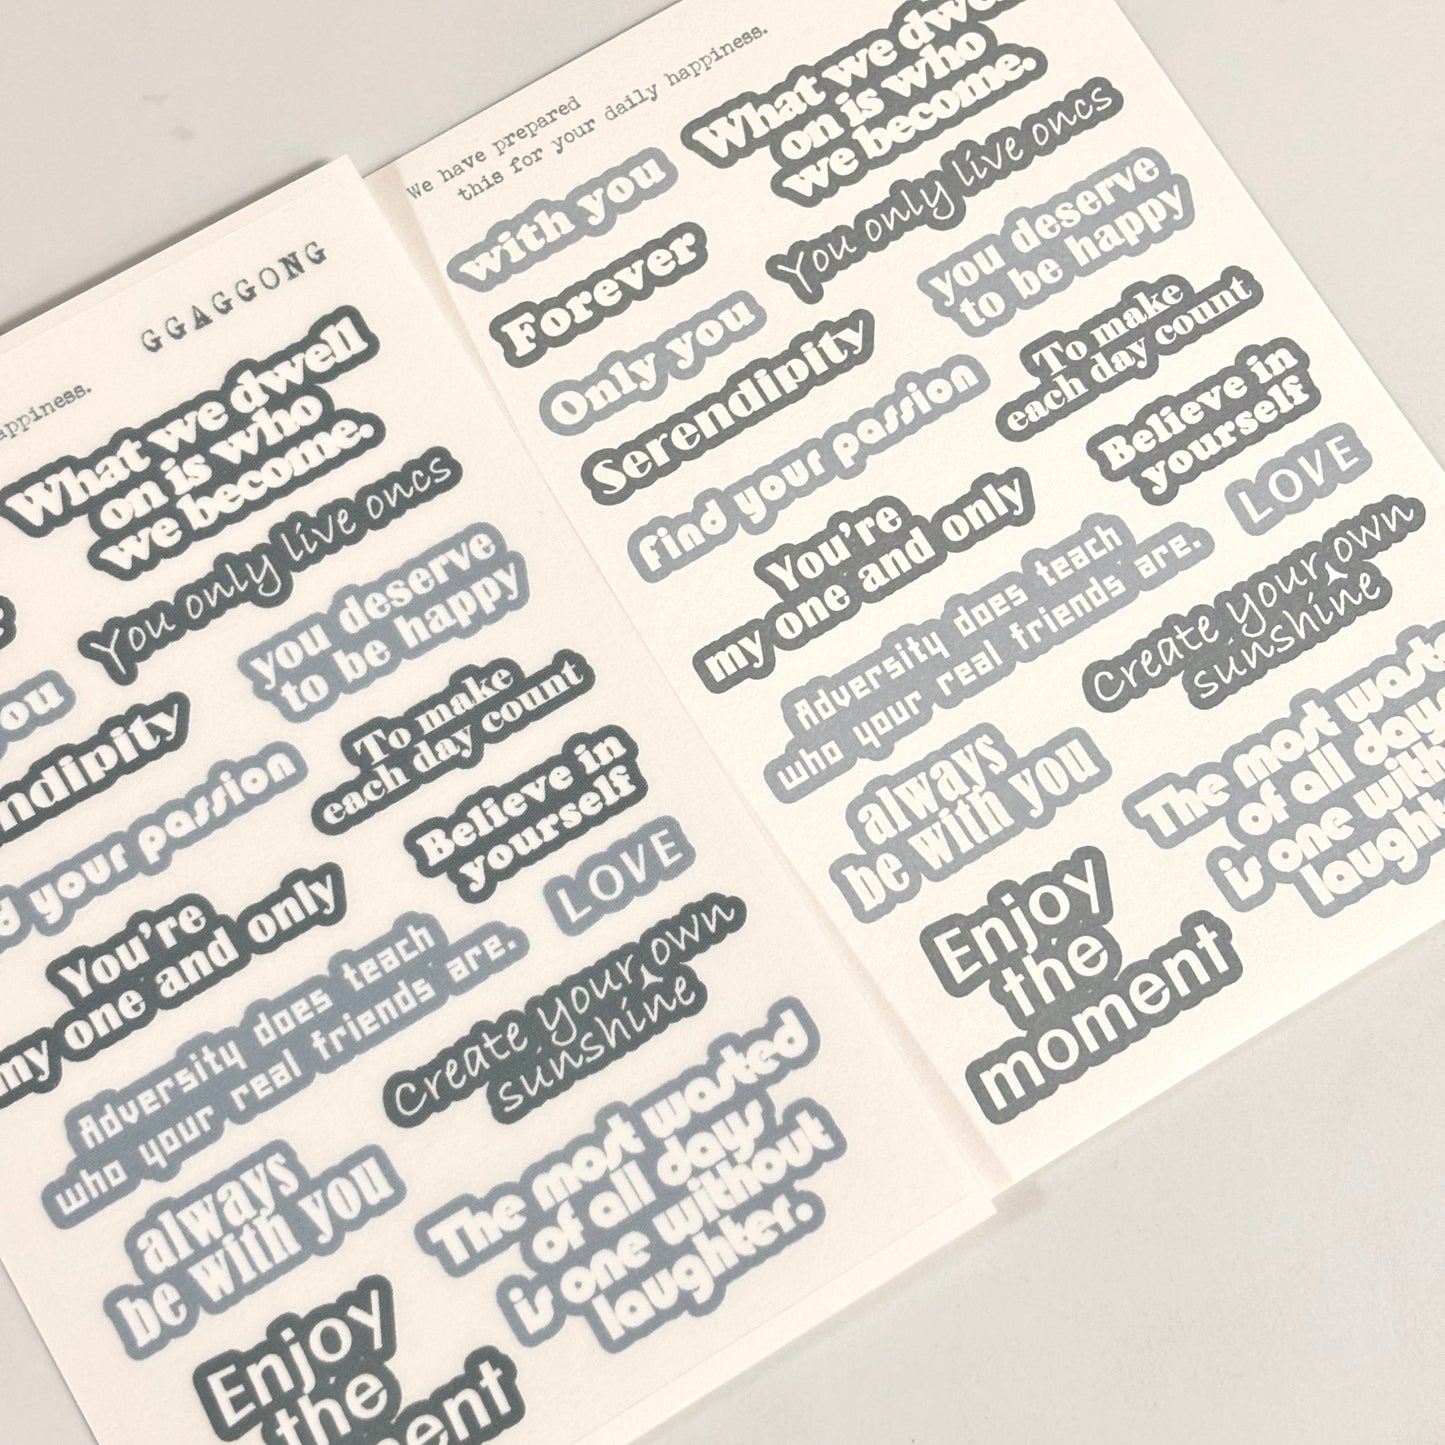 appiness.
GGAGGONG
What we dwell
on is who
we become.
You only live oncs
you deserve
to be happy
ou
ndipity
To make
each day count
d your passion
Believe in
yourself
You're
my one and only
LOVE
Adversity does teach
who your real friends are.
Create your own
sunshine
always
be with you
The most wasted
of all days,
is one without
laughter.
Enjoy
the
ent
We have prepared
this for your daily happiness.
What we dwe
on is who
we become.
with you
You only live oncs
Forever
you deserve
to be happy
Only you
Serendipity
To make
each day count
find your passion
Believe in
yourself
You're
my one and only
LOVE
Adversity does teach
who your real friends are.
Create your own
sunshine
always
be with you
The most waste
of all day
is one with
laught
Enjoy
the
moment